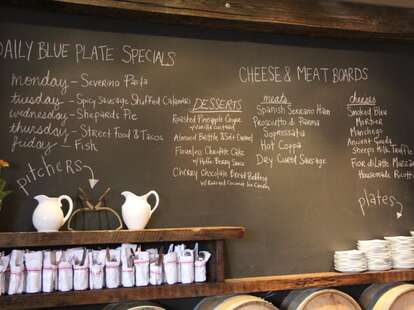 DAILY BLUE PLATE SPECIALS
monday - Severino Pasta
tuesday - Spicy Sausage Stuffed Calamari
wednesday - Shepards Pie
thursday - Street Food & Tacos
friday - Fish
pitchers
DESSERTS
Roasted Pineapple Crepe
w/ Vanilla Custard
Almond Brittle & Salt Caramel
Flourless Chocolate Cake
Cherry Chocolate Bread Pudding
w/ Coconut Ice Cream
CHEESE & MEAT BOARDS
meats
Spanish Serrano Ham
Prosciutto di Parma
Sopressata
Hot Coppa
Dry Cured Sausage
cheeses
Smoked Bleu
Morbier
Manchego
Ancient Gouda
Sheeps Milk Truffle
Fior di Latte Mozzar
Housemade Ricotta
plates